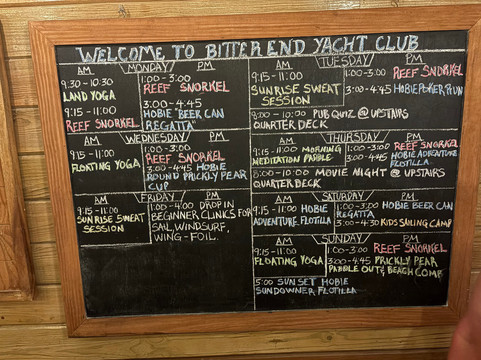 WELCOME TO BITTER END YACHT CLUB
AM MONDAY PM
9:30-10:30
LAND YOGA
9:15-11:00
REEF SNORKEL
1:00-3:00
REEF SNORKEL
3:00-4:45
HOBIE "BEER CAN
REGATTA"
AM TUESDAY PM
9:15-11:00
SUNRISE SWEAT
SESSION
1:00-3:00 REEF SNORKEL
3:00-4:45 HOBIE POKER RUN
8:00-10:00 PUB QUIZ @ UPSTAIRS
QUARTER DECK
AM WEDNESDAY PM
9:15-11:00
FLOATING YOGA
REEF SNORKEL
1:00-3:00
3:00-4:45 HOBIE
ROUND PRICKLY PEAR
CUP
AM THURSDAY PM
9:15-11:00 MORNING
MEDITATION PADDLE
1:00-3:00 REEF SNORKEL
3:00-4:45 HOBIE ADVENTURE
FLOTILLA
8:00-10:00 MOVIE NIGHT @ UPSTAIRS
QUARTER DECK
AM FRIDAY PM
9:15-11:00
SUNRISE SWEAT
SESSION
1:00-4:00 DROP IN
BEGINNER CLINICS FOR
SAIL, WINDSURF,
WING-FOIL.
AM SATURDAY PM
9:15-11:00 HOBIE
ADVENTURE FLOTILLA
1:00-3:00 HOBIE BEER CAN
REGATTA
3:00-4:30 KIDS SAILING CAMP
AM SUNDAY PM
9:15-11:00
FLOATING YOGA
1:00-3:00 REEF SNORKEL
3:00-4:45 PRICKLY PEAR
PADDLE OUT & BEACH COMB
5:00 SUNSET HOBIE
SUNDOWNER FLOTILLA